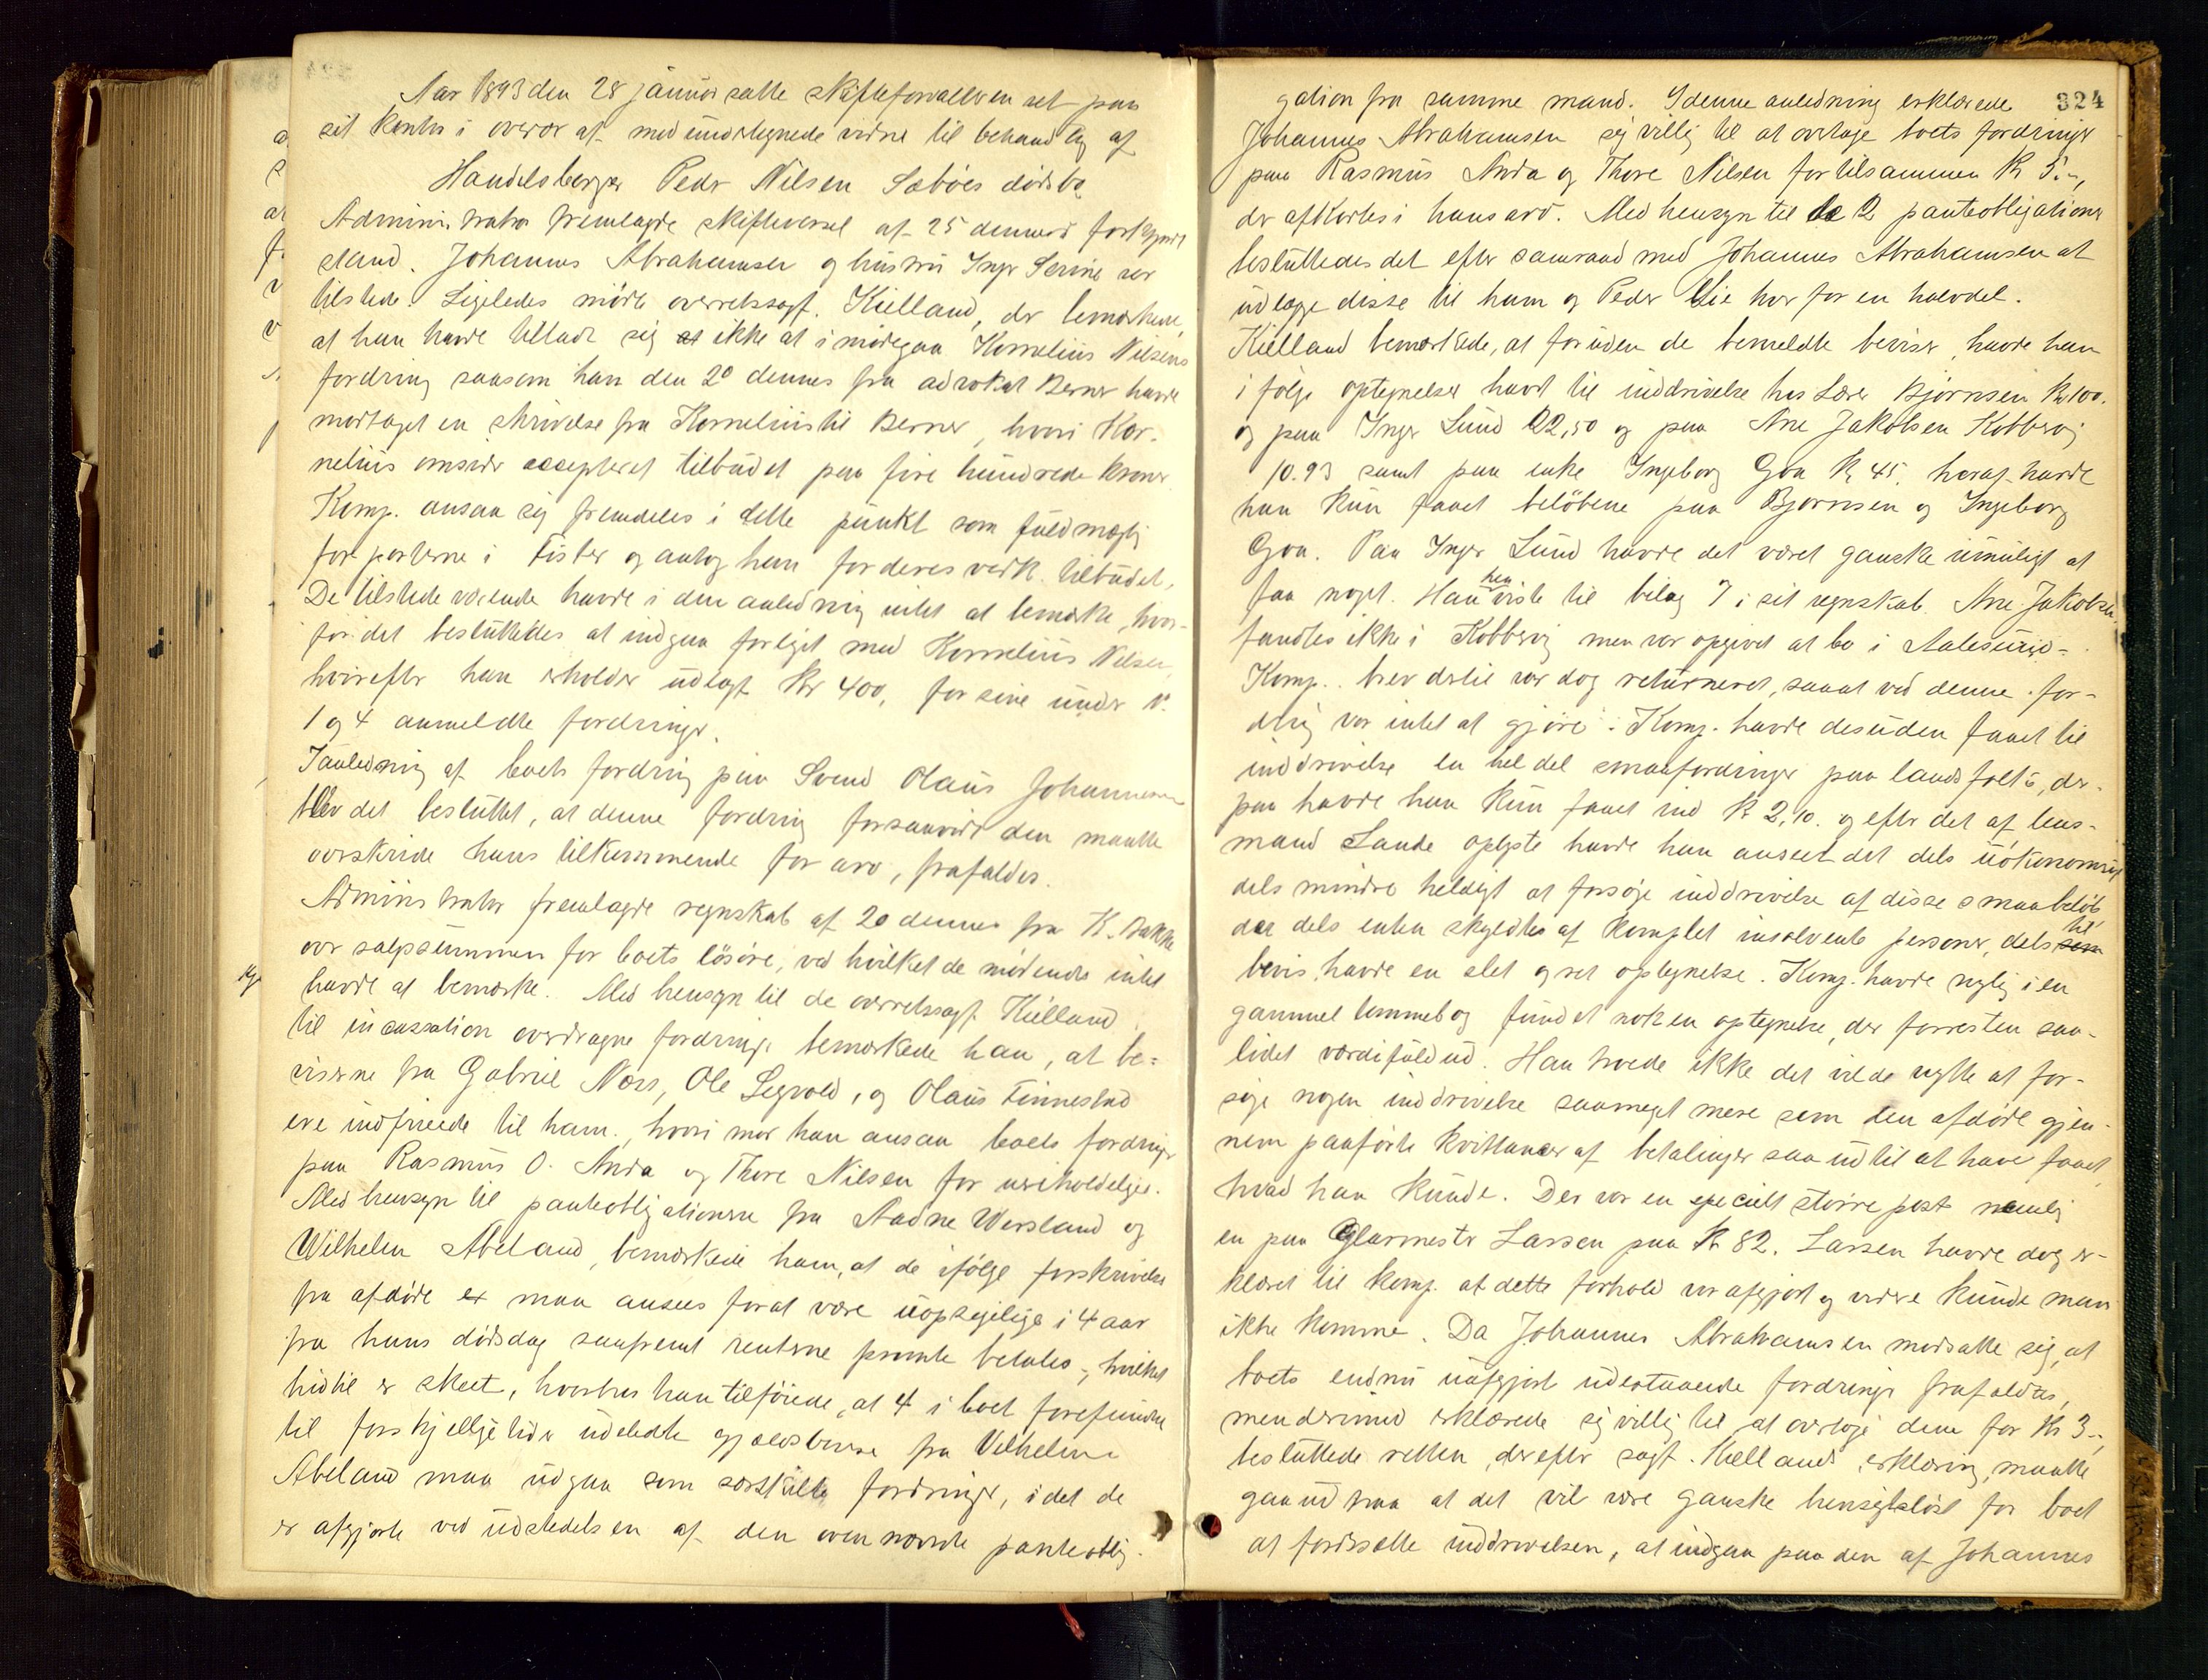 Aar 1893 den 28 januar satte skifteforvalteren ret paa
sit kontor i overvær af medundertegnede vidne til behandling af
Handelsborger Peder Nilsen Sæbøes dødsbo
Administrator fremlagde skiftevarsel af 25 dennes forkyndt
stand. Johannes Abrahamsen og hustru Inger Serine var
tilstede. Ligeledes mødte overretssagf. Kielland, der bemærkede,
at han havde tilladt sig at ikke at imødegaa Kornelius Nilsens
fordring saasom han den 20 dennes fra advokat Berner havde
modtaget en skrivelse fra Kornelius til Berner, hvori Kor-
nelius omsider accepteret tilbudet paa fire hundrede kroner.
Komp. ansaa sig fremdeles i dette punkt som fuldmægtig
for parterne i Fister og antog han for deres vedk. tilbudet.
De tilstedeværende havde i den anledning intet at bemærke, hvor-
for det besluttedes at indgaa forliget med Kornelius Nilsen,
hvorefter han erholder udlagt Kr 400, for sine under N.
1 og 4 anmeldte fordringer.
I anledning af boets fordring paa Svend Olaus Johannesen
blev det besluttet, at denne fordring forsaavidt den maatte
overskride hans tilkommende far arv, frafaldes.
Administrator fremlagde regnskab af 20 dennes fra K. Bakke
over salgssummen for boets løsøre, ved hvilket de mødende intet
havde at bemærke. Med hensyn til de overretssagf. Kielland
til incassation overdragne fordringer bemærkede han, at be-
viserne fra Gabriel Næss, Ole Legvold, og Olaus Finnestad
ere indfriede til ham, hvorimod han ansaa boets fordringer
paa Rasmus O. Anda og Thore Nilsen for uerholdelige.
Med hensyn til panteobligationerne fra Aadne Versland og
Wilhelm Abeland, bemærkede han, at de ifølge forskrivelse
fra afdøde er maa ansees forat være uopsigelige i 4 aar
fra hans dødsdag saafremt renterne promte betales, hvilket
hidtil er skeet, hvorhos han tilføiede, at 4 i boet forefundne
til forskjellige tider udstedte gjældsbevise fra Vilhelm
Abeland maa udgaa som særskilte fordringer, idet de
er afgjorte ved udstedelsen af den ovennævnte panteobli-
324
gation fra samme mand. I denne anledning erklærede
Johannes Abrahamsen sig villig til at overtage boets fordringer
paa Rasmus Anda og Thore Nilsen for tilsammen Kr 5.-,
der afkortes i hans arv. Med hensyn til de 2 panteobligationer
besluttedes det efter samraad med Johannes Abrahamsen at
udlægge disse til ham og Peder Lie hver for en halvdel.
Kielland bemærkede, at foruden de bemeldte beviser, havde han
i følge optegnelser havt til inddrivelse hos Lærer Bjørnsen Kr 100.
og paa Inger Lund 22,50 og paa Ane Jakobsen Kobbervig
10.93 samt paa enke Ingeborg Goa Kr 45. heraf havde
han kun faaet beløbene paa Bjørnsen og Ingeborg
Goa. Paa Inger Lund havde det været ganske umuligt at
faa noget. Han henviste til bilag 7 i sit regnskab. Ane Jakobsen
fandtes ikke i Kobbervig men var opgivet at bo i Aalesund.
Komp. brev dertil var dog returneret, saaat ved denne for-
dring var intet at gjøre. Komp. havde desuden faaet til
inddrivelse en hel del smaafordringer paa landsfolk, der-
paa havde han kun faaet ind Kr 2,10. og efter det af lens-
mand Lande oplyste havde han anseet det dels uøkonomisk
dels mindre heldigt at forsøge inddrivelse af disse smaabeløb
der dels enten skyldtes af komplet insolvente personer, dels som til
bevis havde en slet og ret optegnelse. Komp. havde nylig i en
gammel lommebog fundet nok en optegnelse, der forresten saa-
lidet værdifuld ud. Han troede ikke det vilde nytte at for-
søge nogen inddrivelse saameget mere som den afdøde gjen-
nem paaførte kvittancer af betalinger saa ud til at have faaet
hvad han kunde. Der var en specielt større post nemlig
en paa Glarmester Larsen paa Kr 82. Larsen havde dog er-
klæret til komp. at dette forhold var afgjort og videre kunde man
ikke komme. Da Johannes Abrahamsen modsatte sig, at
boets endnu uafgjort udestaaende fordringer frafaldtes,
men derimod erklærede sig villig til at overtage dem for Kr 3.-,
besluttede retten, derefter sagf. Kiellands erklæring, maatte
gaa ud fra at det vil være ganske hensigtsløst for boet
at fortsætte inddrivelsen, at indgaa paa den af Johannes